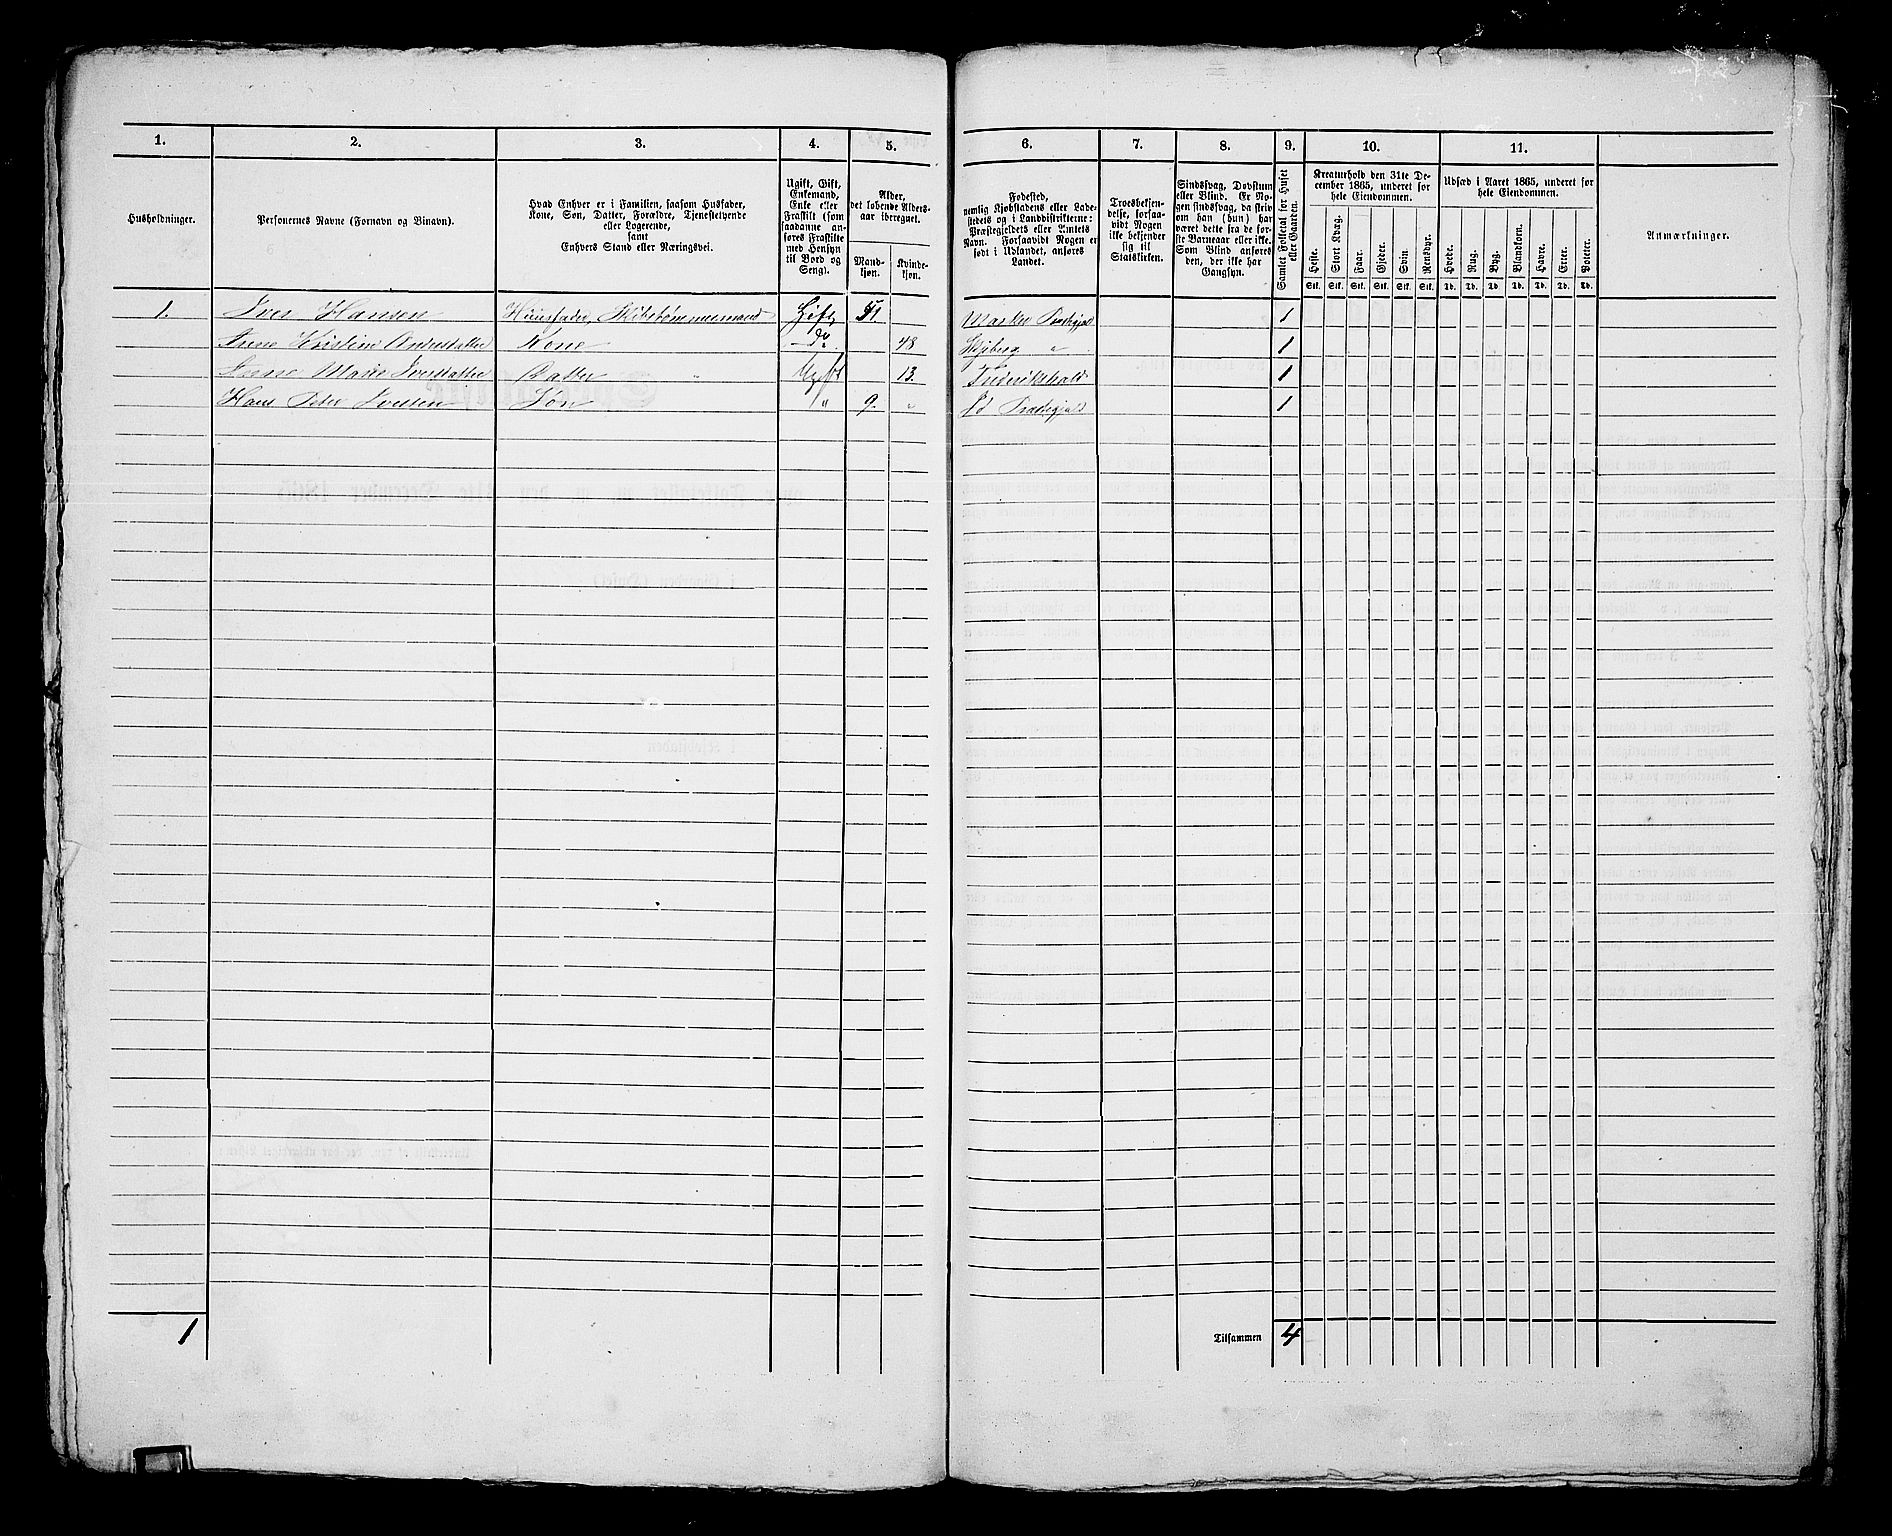 1.
2.
3.
4.
5.
Husholdninger.
Personernes Navne (Fornavn og Binavn).
Hvad Enhver er i Familien, saasom Husfader,
Kone, Søn, Datter, Forældre, Tjenestetyende
eller Logerende,
samt
Enhvers Stand eller Næringsvei.
Ugift, Gift,
Enkemand,
Enke eller
Fraskilt (som
saadanne an-
føres Fraskilte
med Hensyn
til Bord og
Seng).
Alder,
det løbende Alders-
aar iberegnet.
Mand-
kjøn.
Kvinde-
kjøn.
1. Iver Hansen Huusfader, Skibstømmermand Gift 51
Anne Kristine Andersdatter Kone do 48
Marie Iversdatter Datter " Ugift 13.
Hans Peter Iversen Søn " 9. "
1
6.
7.
8.
9.
10.
11.
Fødested,
nemlig Kjøbstadens eller Lade-
stedets og i Landdistrikterne:
Præstegjeldets eller Amtets
Navn. Forsaavidt Nogen er
født i Udlandet, anføres
Landet.
Troesbekjen-
delse, forsaa-
vidt Nogen
ikke bekjender
sig til
Statskirken.
Sindssvag, Døvstum
eller Blind. Er No-
gen sindssvag, da skriv
om han (hun) har
været dette fra de før-
ste Barneaar eller ikke.
Som Blind anføres
den, der ikke har
Gangsyn.
Samlet Folketal for Huset
eller Gaarden.
Kreaturhold den 31te De-
cember 1865, underet for
hele Eiendommen.
Heste.
Stort Kvæg.
Faar.
Gjeder.
Svin.
Rensdyr.
Stk. Stk. Stk. Stk. Stk. Stk.
Udsæd i Aaret 1865, underet for
hele Eiendommen.
Hvede.
Rug.
Byg.
Blandkorn.
Havre.
Erter.
Poteter.
Td. Td. Td. Td. Td. Td. Td.
Anmærkninger.
Marker Præstegjæld 1
Skjeberg " 1
Frederikshald 1
Id Præstegjæld 1
Tilsammen 4